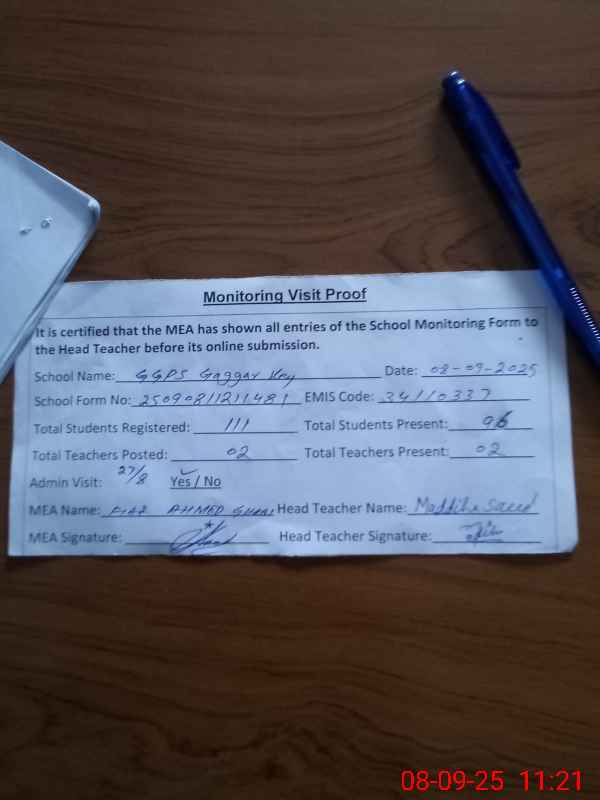 Monitoring Visit Proof
It is certified that the MEA has shown all entries of the School Monitoring Form to
the Head Teacher before its online submission.
School Name: GGPS Gaggar Key Date: 08-09-2025
School Form No: 25090811211481 EMIS Code: 34110337
Total Students Registered: 111 Total Students Present: 96
Total Teachers Posted: 02 Total Teachers Present: 02
Admin Visit: 27/8 Yes / No
MEA Name: AHMED Head Teacher Name: Saeed
MEA Signature: Head Teacher Signature:
08-09-25 11:21